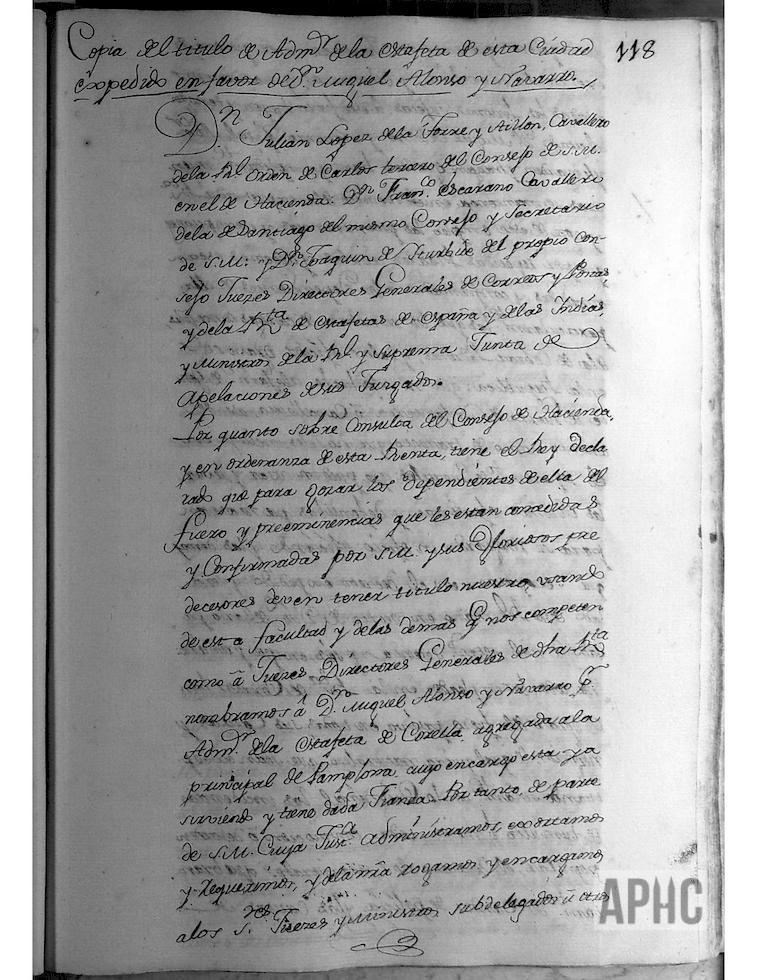 118
Copia del titulo de Admᵒʳ de la estafeta de esta Ciudad
expedido en favor de Dⁿ Miguel Alonso y Navarro.
Dⁿ Julian Lopez dela Torre y Aillon, Cavallero
dela Rˡ orden de Carlos tercero del Consejo de S.M.
en el de Hacienda: Dⁿ Franᶜᵒ Escarano Cavallero
dela de Santiago del mismo Consejo y Secretario
de S.M: y Dⁿ Joaquin de Iturbide del propio con-
sejo Juezes Directores Generales de Correos y Postas,
y dela Rᵗᵃ de estafetas de españa y de las Indias,
y Ministros de la Rˡ y Suprema Junta de
Apelaciones de sus Juzgados.
Por quanto sobre Consulta del Consejo de Hacienda,
y en ordenanza de esta Renta, tiene el Rey decla
rado que para gozar los dependientes de ella del
fuero y preeminencias que les estan concedidas
y Confirmadas por S.M. y sus Gloriosos pre
decesores deven tener titulo nuestro, usando
de esta facultad y delas demas q̃ nos competen
como â Juezes Directores Generales de dha Rᵗᵃ
nombramos â Dⁿ Miguel Alonso y Navarro pʳ
Admᵒʳ dela estafeta de Corella agregada a la
principal de Pamplona cuyo encargo esta ya
sirviendo y tiene dada Fianza. Por tanto, de parte
de S.M. Cuya Justᵃ administramos, exortamos
y requerimos, y dela ñra rogamos y encargamos
a los Sʳᵉˢ Juezes y Ministros subdelegados û otros
APHC